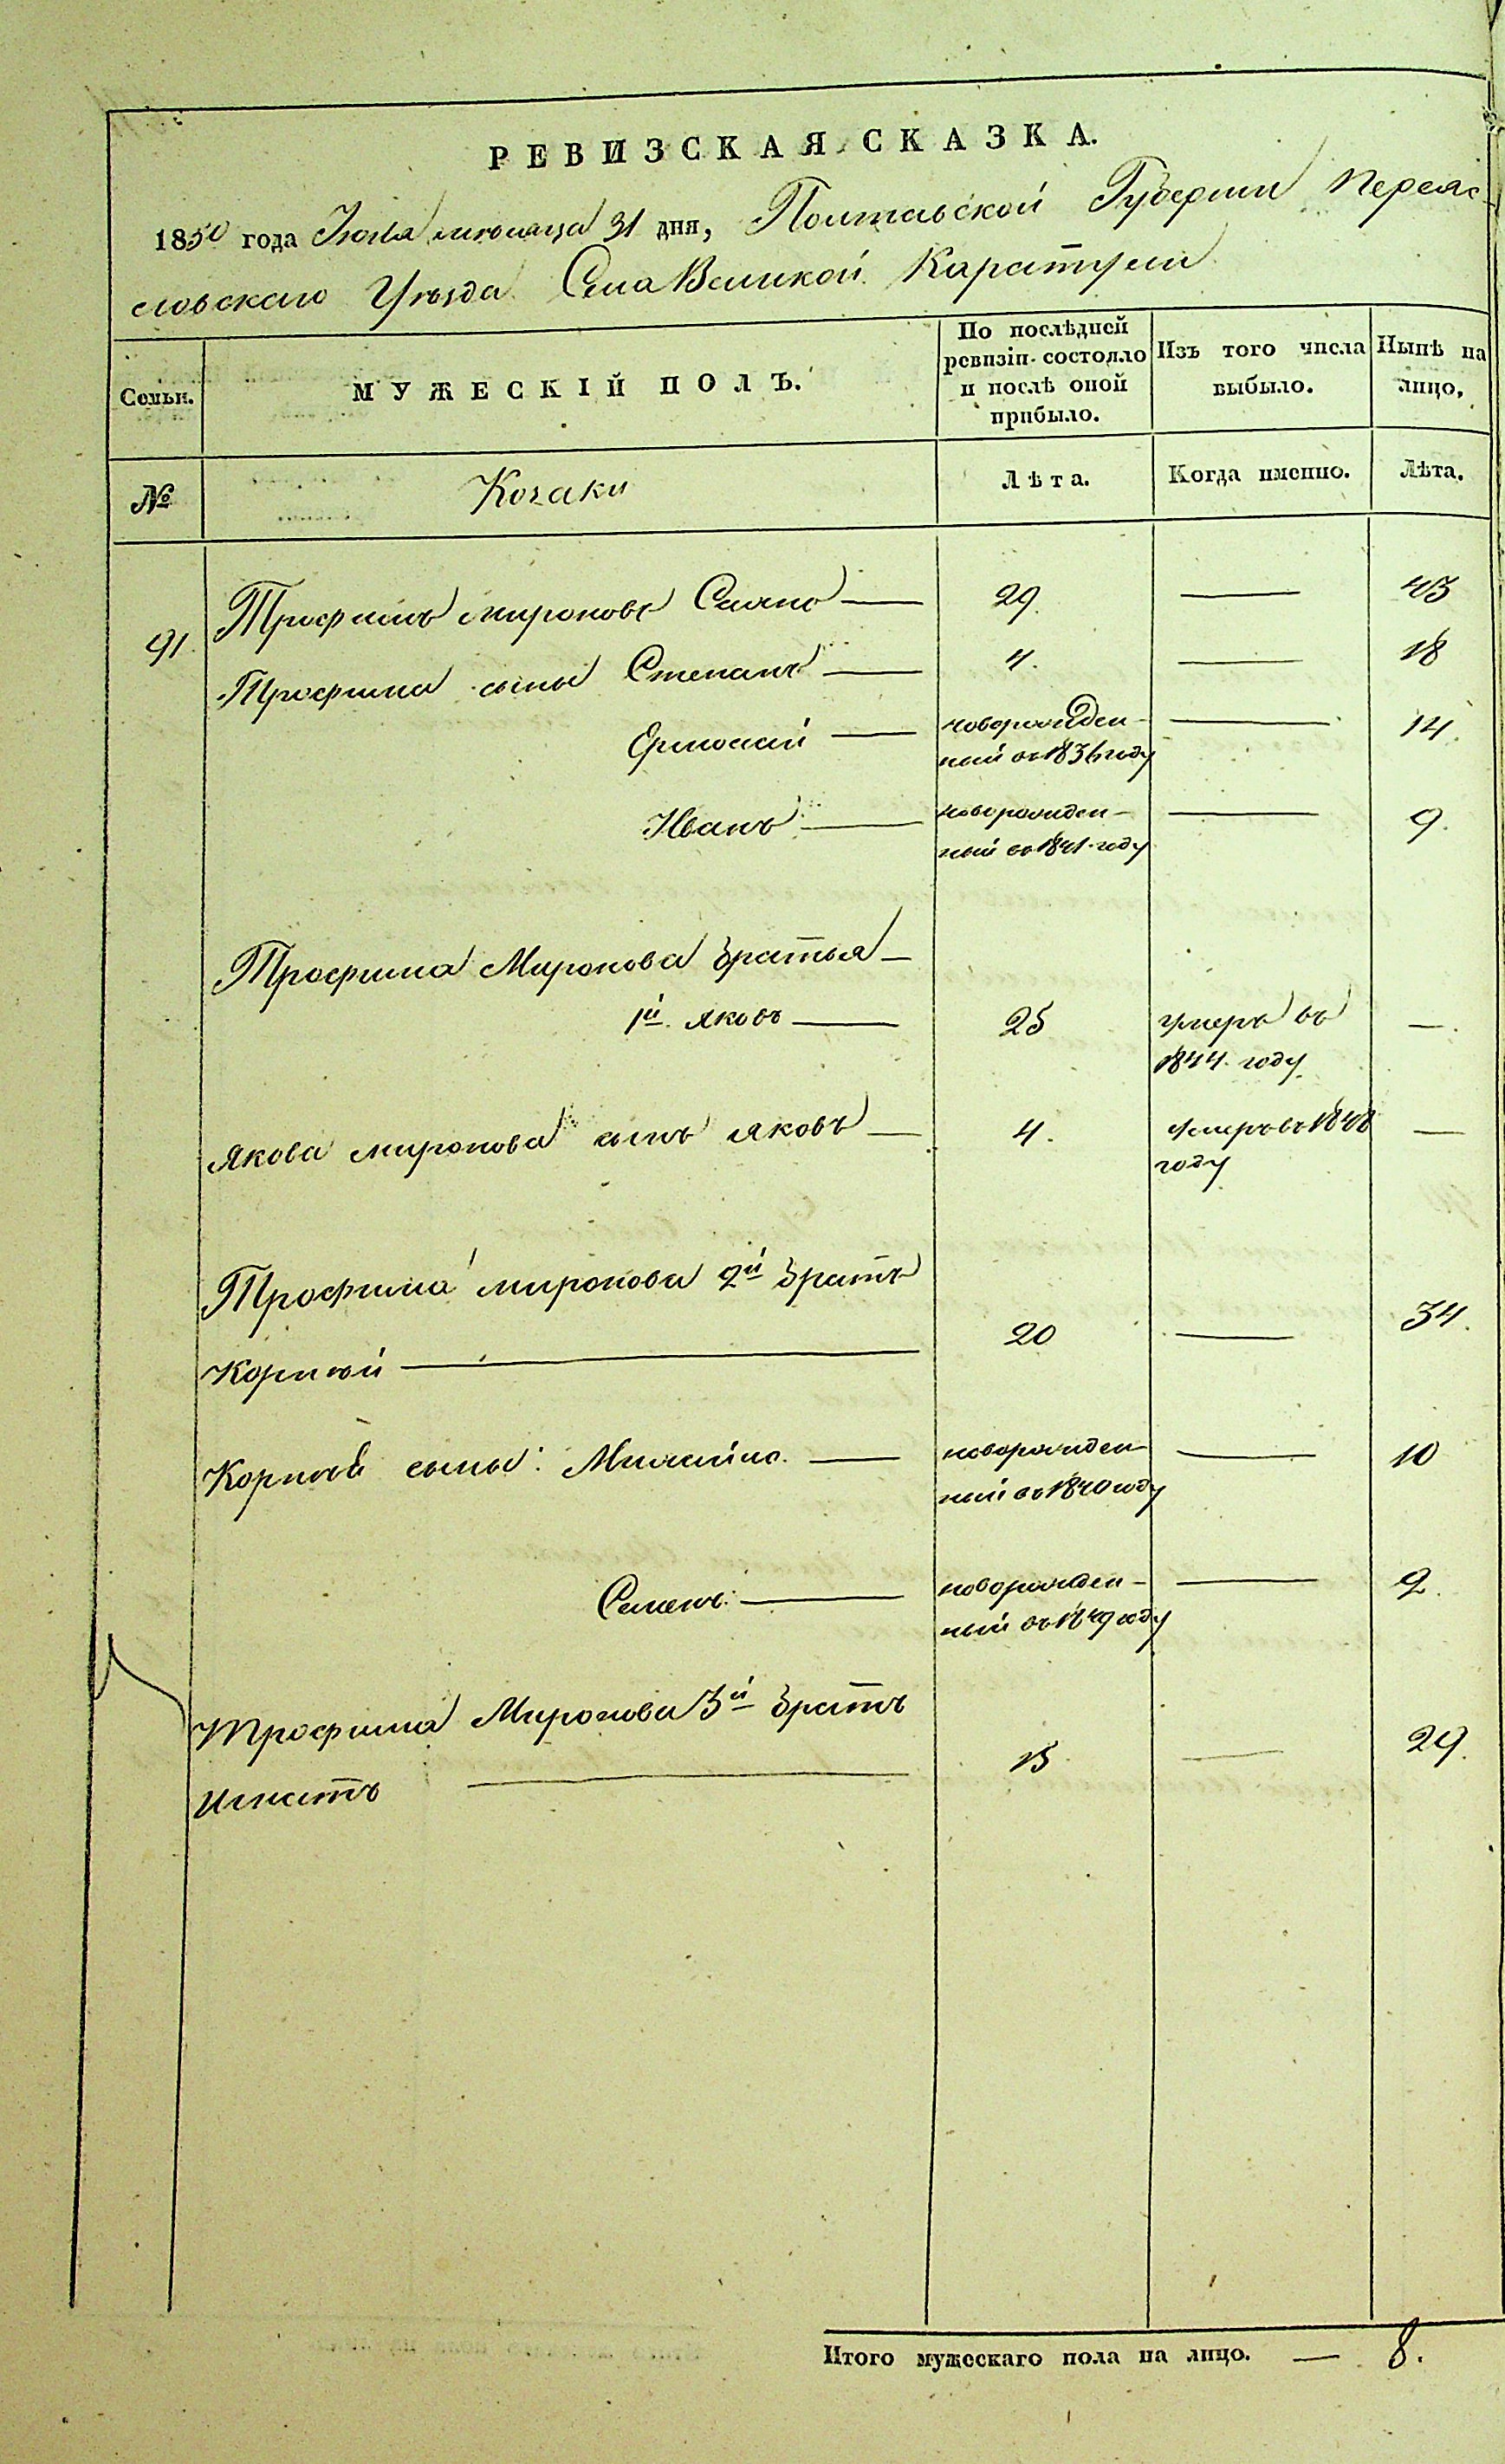 РЕВИЗСКАЯ СКАЗКА.
1850 года Июля месяца 31 дня, Полтавской Губернии Переяс-
ловскаго Уезда Села Великой Каратули
Семьи. МУЖЕСКІЙ ПОЛЪ. По послѣдней ревизіи состояло и послѣ оной прибыло. Изъ того числа выбыло. Нынѣ на лицо.
№ Козаки Лѣта. Когда именно. Лѣта.
91 Трофимъ Мироновъ 29. — 43
Трофима сыны Степанъ — 4. — 18
Ермолай — новорожден-
ный въ 1836 году — 14.
Иванъ — новорожден-
ный въ 1841 году — 9.
Трофима Миронова братья —
1й Яковъ — 25 умеръ въ
1844 году —
Якова Миронова сынъ Яковъ — 4. умеръ въ 1848
году —
Трофима Миронова 2й братъ
Корнѣй — 20 — 34.
Корнѣя сыны: — новорожден-
ный въ 1840 году — 10
Семенъ: — новорожден-
ный въ 1849 году — 2.
Трофима Миронова 3й братъ
Игнатъ — 15 — 29.
Итого мужескаго пола на лицо. — 8.